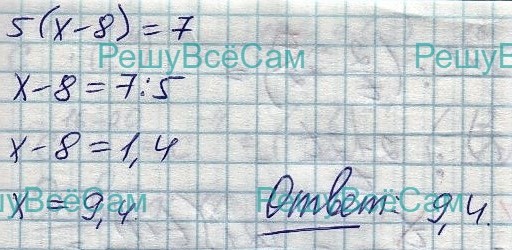 5(x-8)=7
РешуВсёСам РешуВ
x-8=7:5
x-8=1,4
x=9,4. Ответ: 9,4.
уВсёСам РешуВсёСам